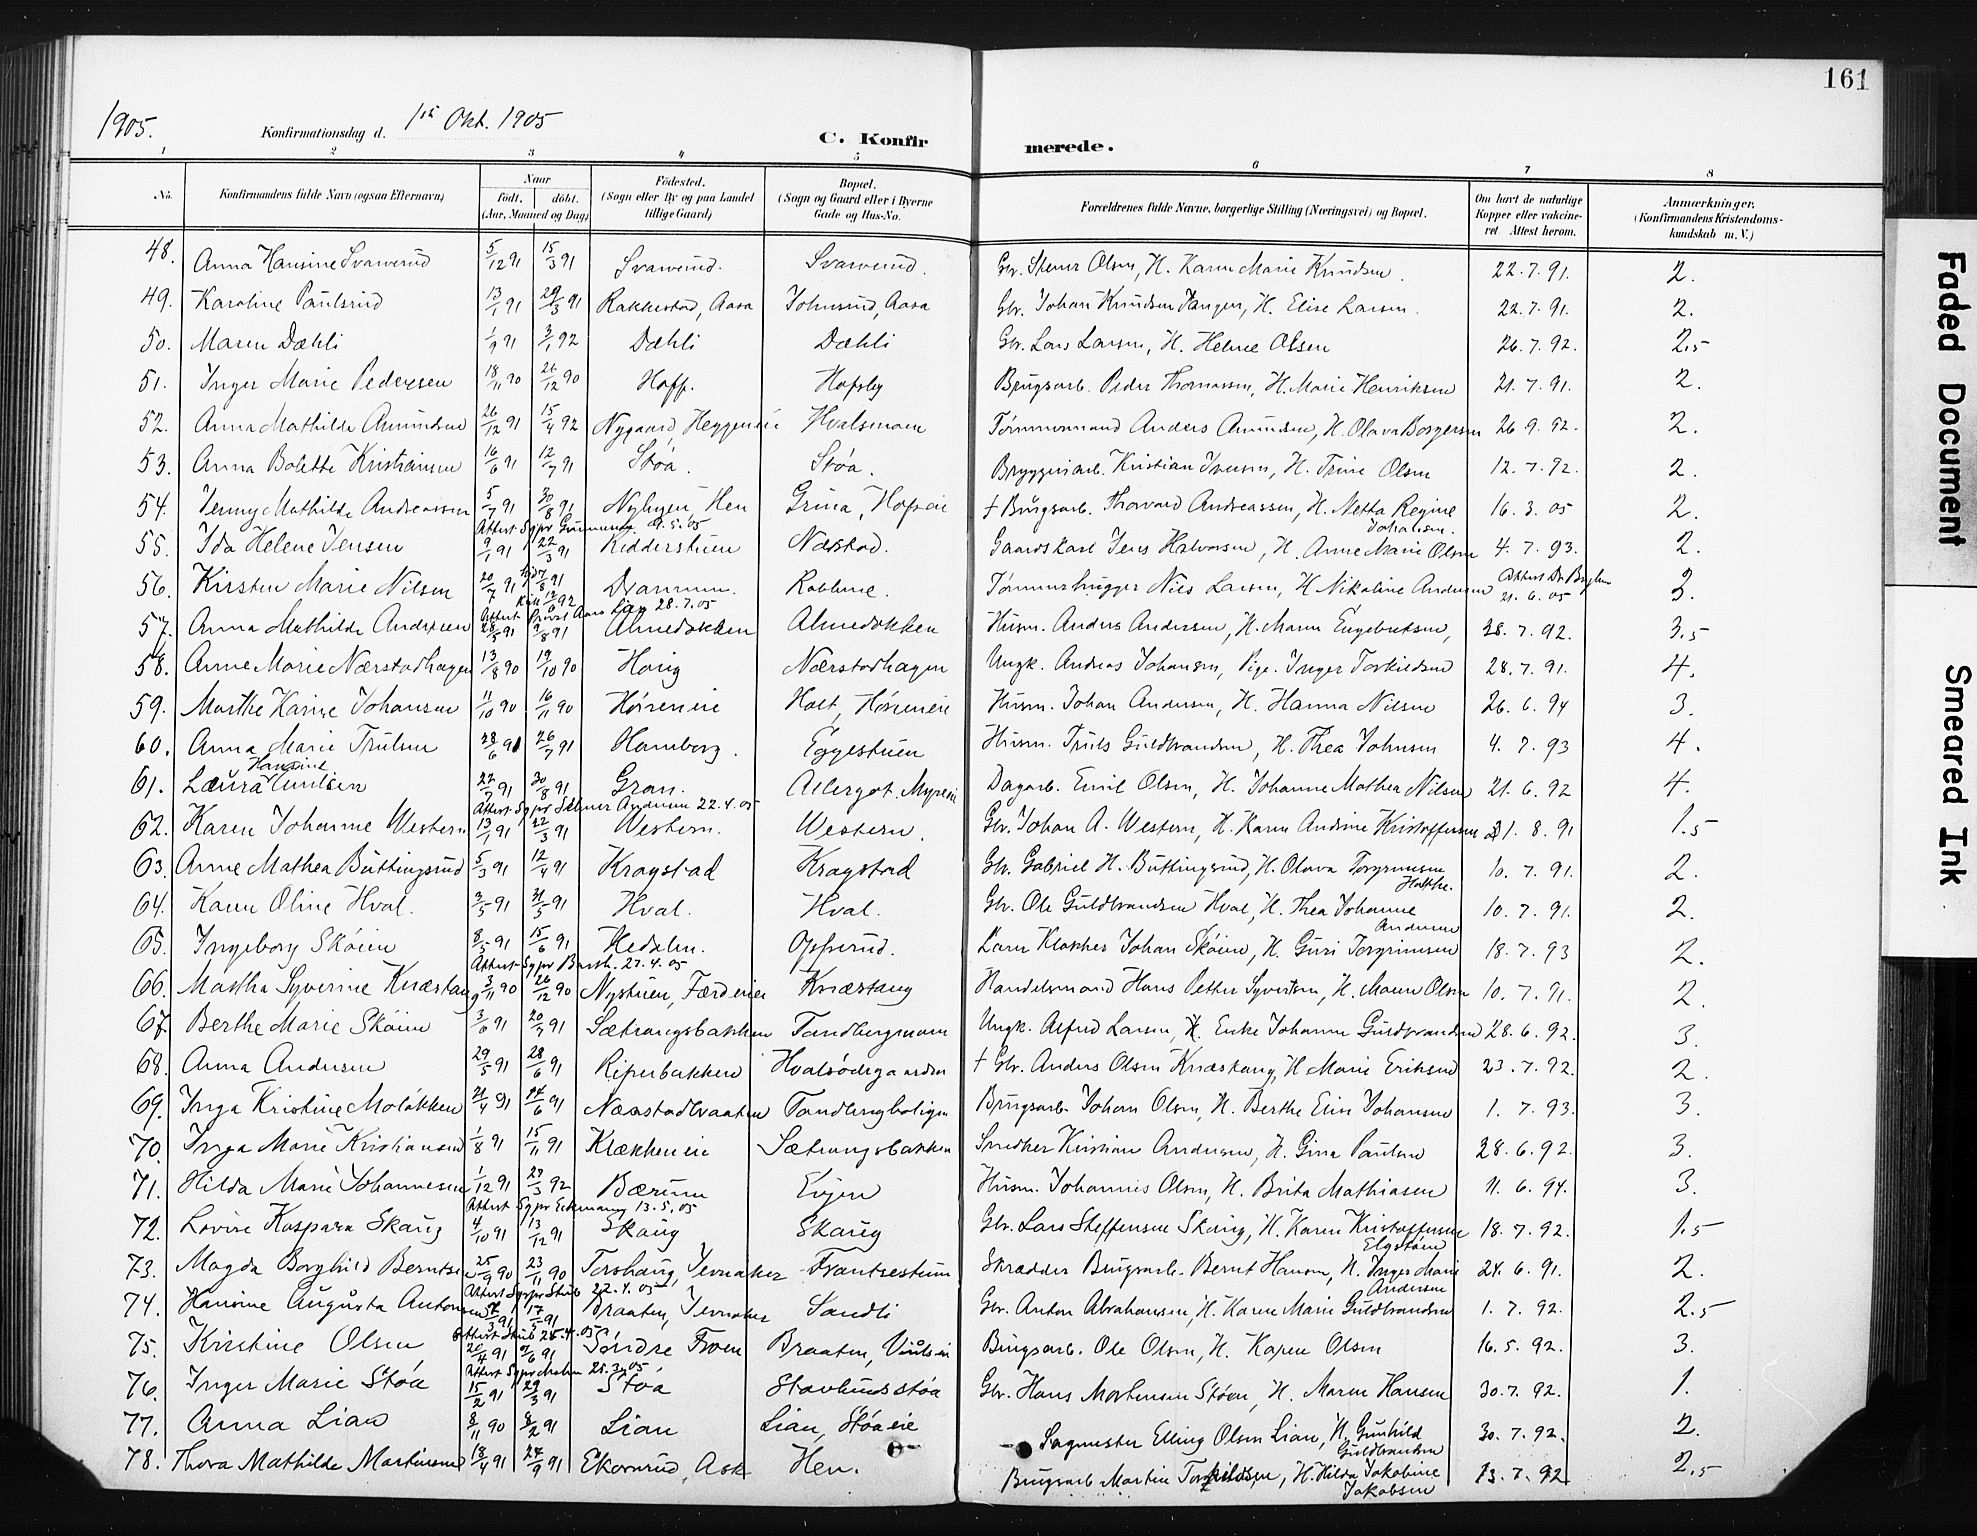 161
1905. Konfirmationsdag d. 1ste Okt. 1905 C. Konfirmerede.
1 2 3 4 5 6 7 8
No. Konfirmandens fulde Navn (ogsaa Efternavn) Naar født. døbt. (Aar, Maaned og Dag) Fødested. (Sogn eller By og paa Landet tillige Gaard) Bopæl. (Sogn og Gaard eller i Byerne Gade og Hus-No. Forældrenes fulde Navne, borgerlige Stilling (Næringsvei) og Bopæl. Om havt de naturlige Kopper eller vakcineret. Attest herom. Anmærkninger. (Konfirmandens Kristendomskundskab m. V.)
48. Anna Hansine Svarverud 5/12 91 15/3 91 Svarverud. Svarverud. Gbr. Stener Olsen, H. Karen Marie Knudsen. 22.7.91. 2.
49. Karoline Paulsrud 13/1 91 29/3 91 Rakkestad, Aasa Johnsrud, Aasa Gbr. Johan Knudsen Tanger, H. Elise Larsen. 22.7.91. 2.
50. Maren Dæhli 1/9 91 3/1 92 Dæhli Dæhli Gbr. Lars Larsen, H. Helene Olsen 26.7.92. 2.5
51. Inger Marie Pedersen 18/11 90 26/12 90 Hoff. Hofsby Brugsarb. Peder Thomassen, H. Marie Henriksen 21.7.91. 2.
52. Anna Mathilde Amundsen 26/12 91 15/4 92 Nygaard, Heggeneie Hvalsmoen Tømmermand Anders Amundsen, H. Olava Borgersen 26.9.92. 2.
53. Anna Bolette Kristiansen 16/6 91 12/7 91 Støa. Støa. Bryggeriarb. Kristian Iversen, H. Trine Olsen 12.7.92. 2.
54. Jenny Mathilde Andreassen 5/7 91 30/8 91 Nybyen, Hen Grina, Hofseie † Brugsarb. Thorvard Andreassen, H. Netta Regine Johansen. 16.3.05 2.
55. Ida Helene Jensen 9/1 91 22/3 91 Ridderstuen Nærstad. Gaardskarl Jens Halvorsen, H. Anne Marie Olsen 4.7.93. 2.
56. Kirsten Marie Nilsen 20/7 91 Drammen. Rabbene. Tømmerhugger Nils Larsen, H. Nikoline Andersen 21.6.05 3.
57. Anna Mathilde Andersen 28/5 91 9/8 91 Almedokken Almedokken Husm. Anders Andersen, H. Maren Engebretsen, 28.7.92. 3.5
58. Anne Marie Nærstadhagen 13/8 90 19/10 90 Haug Nærstadhagen Ungk. Andreas Johansen, Pige. Inger Torkildsen 28.7.91. 4.
59. Marthe Karine Johansen 11/10 90 16/11 90 Høreneie Holt, Høreneie Husm. Johan Andersen, H. Hanna Nilsen 26.6.94 3.
60. Anna Marie Trulsen 28/6 91 26/7 91 Hamborg. Eggestuen Husm. Truls Guldbrandsen, H. Thea Johnsen 4.7.93 4.
61. Laura Hansine Emilsen 22/7 91 30/8 91 Gran. Myreeie Dagarb. Emil Olsen, H. Johanne Mathea Nilsen 21.6.92 4.
62. Karen Johanne Western 13/1 91 22/3 91 Western. Western. Gbr. Johan A. Western, H. Karen Andrine Kristoffersen 21.8.91 1.5
63. Anne Mathea Buttingsrud 5/3 91 12/4 91 Kragstad Kragstad Gbr. Gabriel H. Buttingsrud, H. Olava Torgrimsen 10.7.91. 2.
64. Karen Oline Hval. 3/5 91 31/5 91 Hval. Hval. Gbr. Ole Guldbrandsen Hval, H. Thea Johanne Andersen 10.7.91. 2.
65. Ingeborg Skøien 8/5 91 15/6 91 Hedalen. Opperud. Lærer Klokker Johan Skøien, H. Guri Torgrimsen 18.7.93 2.
66. Martha Syverine Knæstang 3/11 90 26/12 90 Nystuen, Færdeneie Knæstang Handelsmand Hans Petter Syvertsen, H. Maren Olsen 10.7.91. 2.
67. Berthe Marie Skøien 3/6 91 20/7 91 Sætrangsbakken Tandbergmoen Ungk. Alfred Larsen, Enke Johanne Guldbrandsen 28.6.92. 3.
68. Anna Andersen 29/5 91 28/6 91 Riperbakken Hvalsødegaarden † Gbr. Anders Olsen Knæstang, H. Marie Eriksen 23.7.92. 2.
69. Inga Kristine Moløkken 21/4 91 14/6 91 Nærstadbraaten Tandbergboligen Brugsarb. Johan Olsen, H. Berthe Elin Johansen 1.7.93. 3.
70. Inga Marie Kristiansen 1/8 91 15/11 91 Klækkeneie Sætrangsbakken Snedker Kristian Andersen, H. Gina Paulsen 28.6.92. 3.
71. Hilda Marie Johannesen 1/12 91 27/3 92 Bærum Evjen Husm. Johannes Olsen, H. Brita Mathiasen 11.6.94. 3.
72. Lovise Kaspara Skaug 4/10 91 13/12 91 Skaug Skaug Gbr. Lars Steffensen Skaug, H. Karen Kristoffersen Elgstøen 18.7.92. 1.5
73. Magda Borghild Berntsen 25/9 90 23/11 90 Torshaug, Jevnaker Frantsestuen Skrædder Brugsarb. Bernt Hansen, H. Inger Marie Andersen 24.6.91. 2.
74. Hansine Augusta Antonsen 17/5 91 Braaten, Jevnaker Sandli Gbr. Anton Abrahamsen, H. Karen Marie Guldbrandsen 1.7.92. 2.5
75. Kristine Olsen 20/4 91 Søndre Froen Braaten, Brugsarb. Ole Olsen, H. Karen Olsen 16.5.92. 3.
76. Inger Marie Støa 15/2 91 29/3 91 Støa Stavlundsstøa Gbr. Hans Mortensen Støen, H. Maren Hansen 30.7.92. 1.
77. Anna Lian 8/11 90 8/2 91 Lian Lian, Støaeie Sagmester Elling Olsen Lian, H. Gunhild Guldbrandsen 30.7.92. 2.
78. Thora Mathilde Martinsen 18/4 91 27/9 91 Ekornrud, Ask Hen. Brugsarb Martin Torkildsen, H. Hilda Jakobine Jakobsen 13.7.92 2.5
Faded Document
Smeared Ink